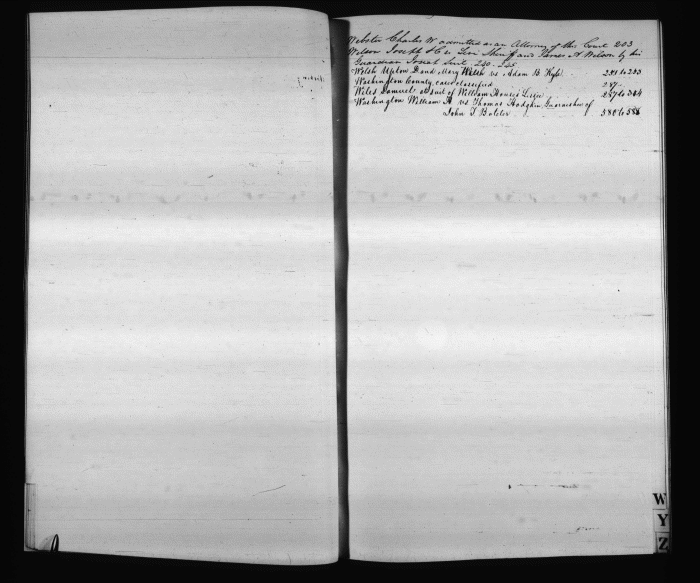 Webster Charles W admitted as an Attorney of this Court 203
Welson Joseph H & Levi Sheriff and James A Welson by his
Guardian Josiah Suit 240. 245
Welsh Upton D and Mary Welsh vs Adam B. Kyle. 245 to 253
Washington County cases classified 287
Wiles Samuel at suit of William House's Lessee 287 to 304
Washington William H vs Thomas Hodgkin Garnishee of
John T 380 to 388
W
Y
Z